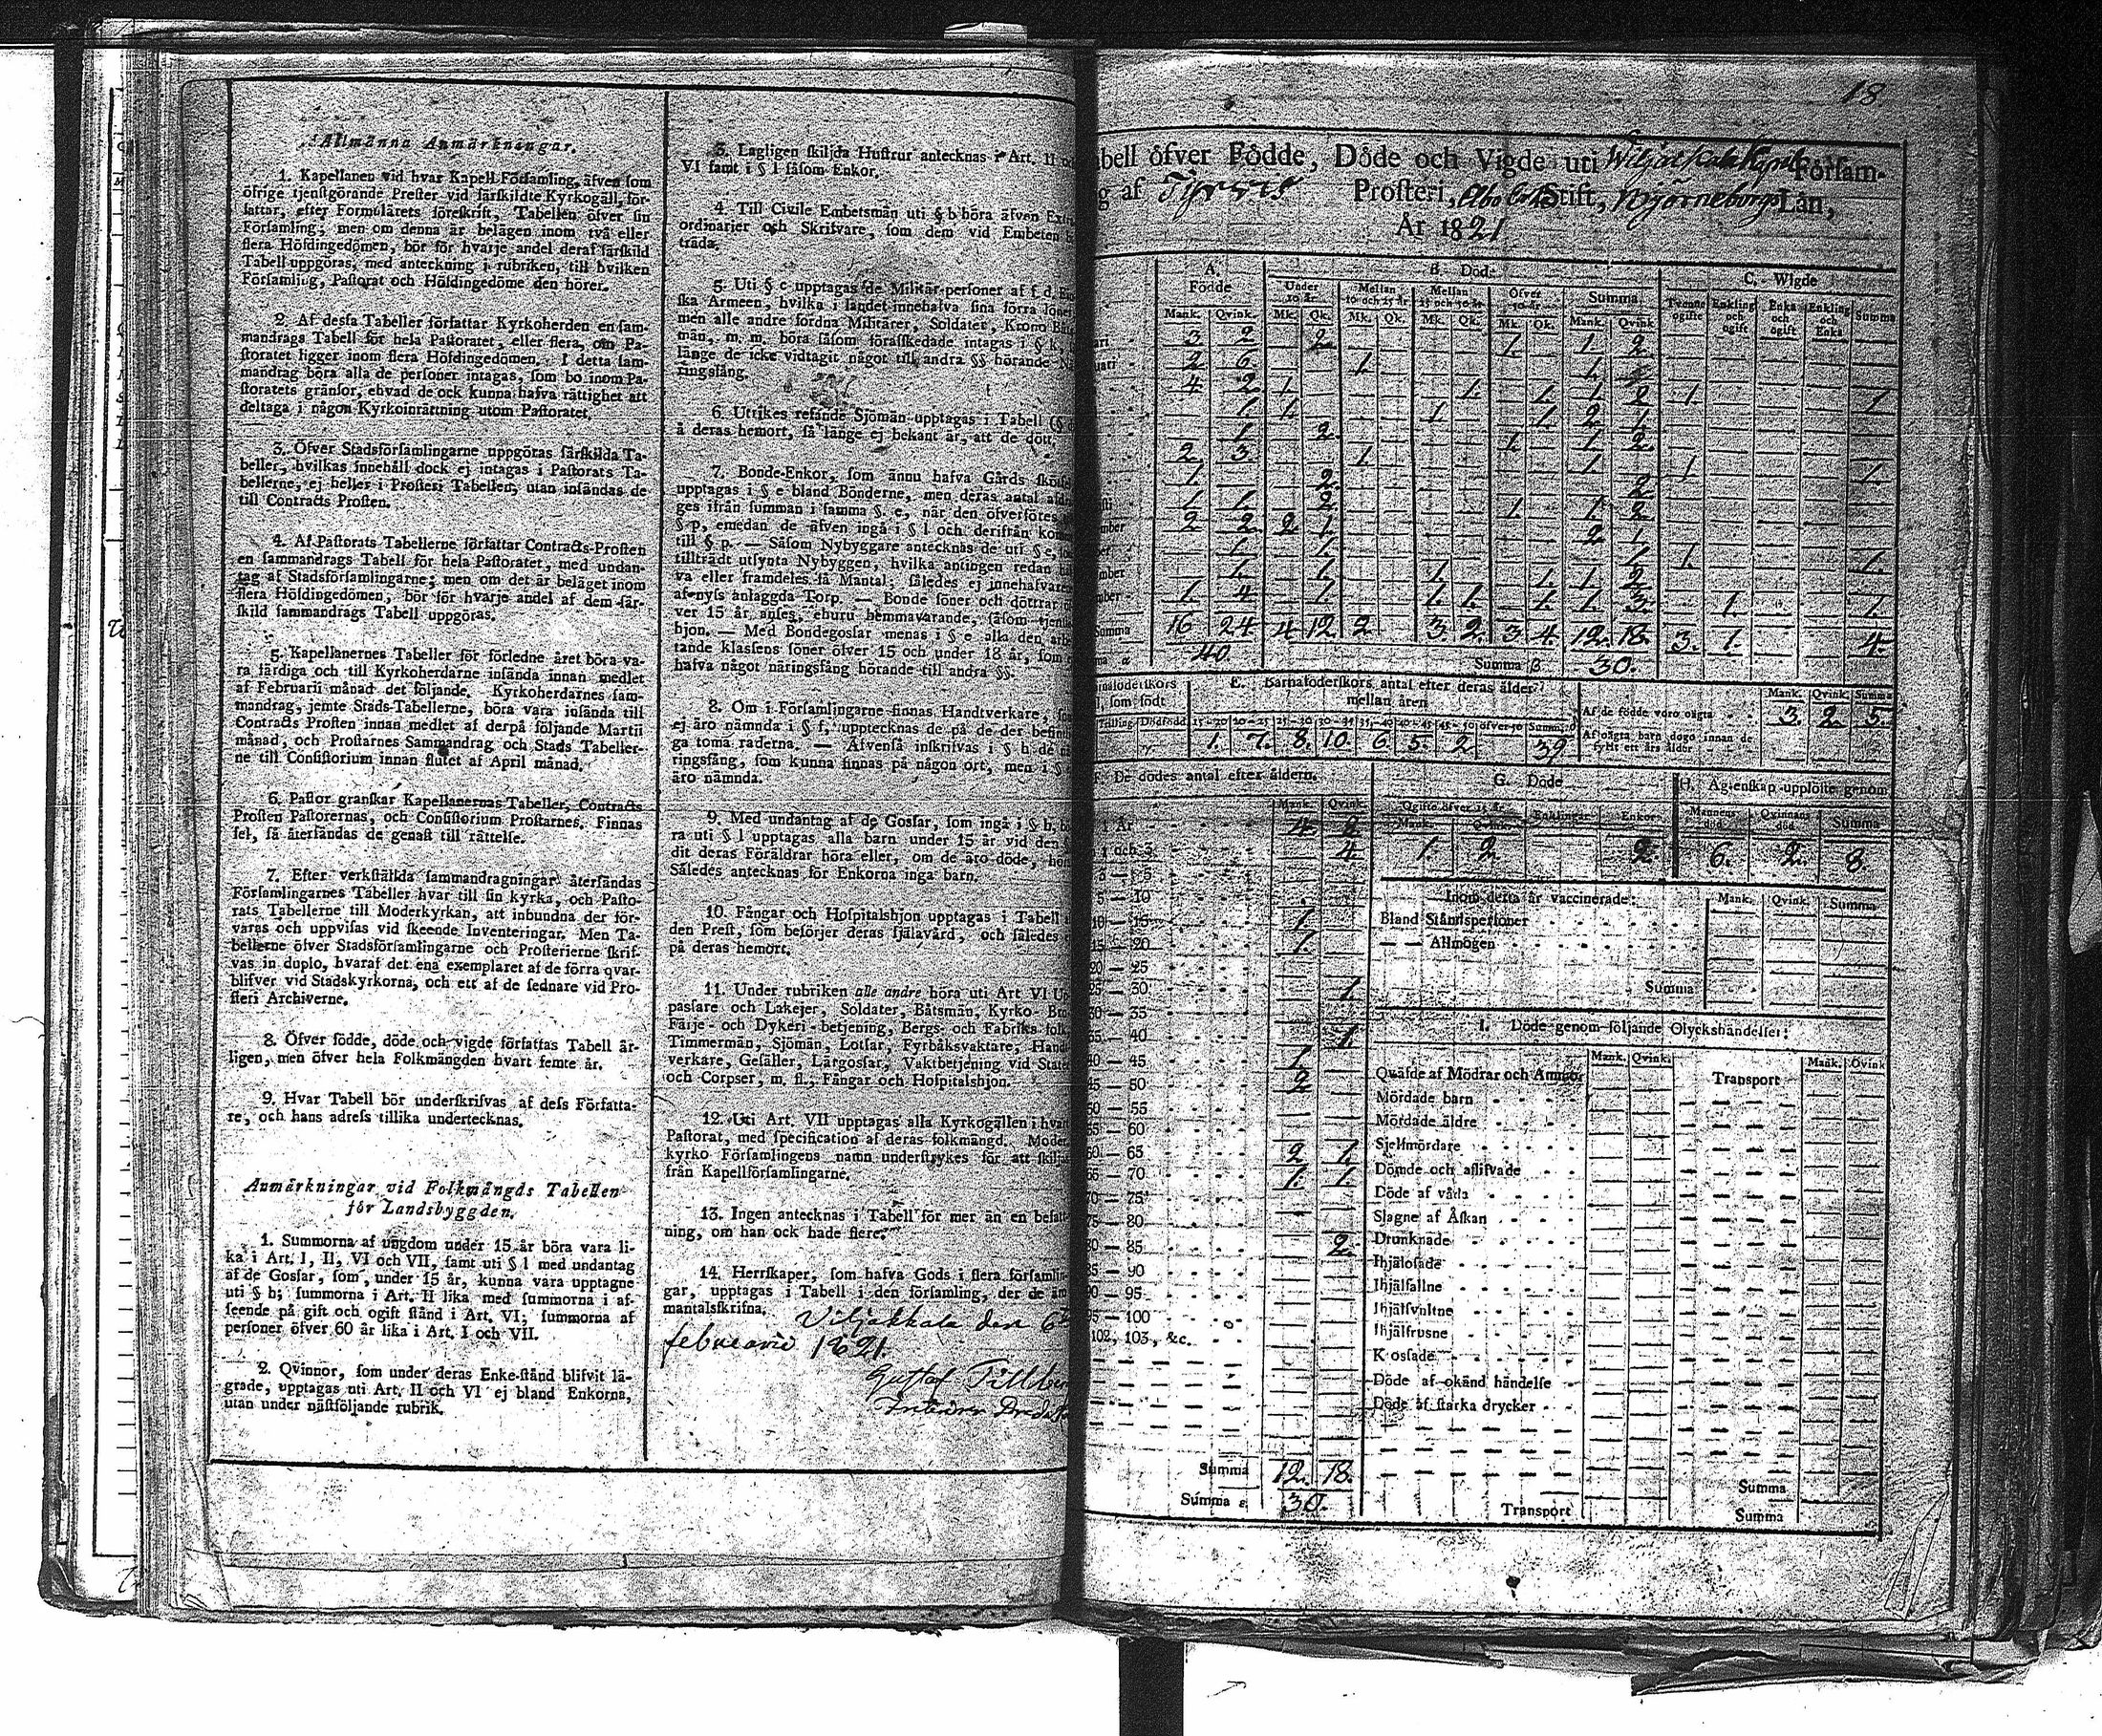 Allmänna Anmärkningar.
1. Kapellanen vid hvar Kapell-Församling, äfven som
öfrige tjenstgörande Prester vid särskildte Kyrkogäll, för-
fattar, efter Formulärets föreskrift, Tabellen öfver sin
Församling; men om denna är belägen inom två eller
flera Höfdingedömen, bör för hvarje andel deraf särskild
Tabell uppgöras, med anteckning i rubriken, till hvilken
Församling, Pastorat och Höfdingedöme den hörer.
2. Af dessa Tabeller författar Kyrkoherden en sam-
mandrags Tabell för hela Pastoratet, eller flera, om Pa-
storatet ligger inom flera Höfdingedömen. I detta sam-
mandrag böra alla de personer intagas, som bo inom Pa-
storatets gränsor, ehvad de ock kunna hafva rättighet att
deltaga i någon Kyrkoinrättning utom Pastoratet.
3. Öfver Stadsförsamlingarne uppgöras särskilda Ta-
beller, hvilkas innehåll dock ej intagas i Pastorats Ta-
bellerne, ej heller i Prosteri Tabellen, utan insändas de
till Contracts Prosten.
4. Af Pastorats Tabellerne författar Contracts-Prosten
en sammandrags Tabell för hela Pastoratet, med undan-
tag af Stadsförsamlingarne; men om det är beläget inom
flera Höfdingedömen, bör för hvarje andel af dem sär-
skild sammandrags Tabell uppgöras.
5. Kapellanernes Tabeller för förledne året böra va-
ra färdiga och till Kyrkoherdarne insända innan medlet
af Februarii månad det följande. Kyrkoherdarnes sam-
mandrag, jemte Stads-Tabellerne, böra vara insända till
Contracts Prosten innan medlet af derpå följande Martii
månad, och Prostarnes Sammandrag och Stads Tabeller-
ne till Consistorium innan slutet af April månad.
6. Pastor granskar Kapellanernas Tabeller, Contracts
Prosten Pastorernas, och Consistorium Prostarnes. Finnas
fel, så återsändas de genast till rättelse.
7. Efter verkställda sammandragningar återsändas
Församlingarnes Tabeller hvar till sin kyrka, och Pasto-
rats Tabellerne till Moderkyrkan, att inbundna der för-
varas och uppvisas vid skeende Inventeringar. Men Ta-
bellerne öfver Stadsförsamlingarne och Prosterierne skrif-
vas in duplo, hvaraf det ena exemplaret af de förra qvar-
blifver vid Stadskyrkorna, och ett af de sednare vid Pro-
steri Archiverne.
8. Öfver födde, döde och vigde författas Tabell år-
ligen, men öfver hela Folkmängden hvart femte år.
9. Hvar Tabell bör underskrifvas af dess Författa-
re, och hans adress tillika undertecknas.
Anmärkningar vid Folkmängds Tabellen
för Landsbyggden.
1. Summorna af ungdom under 15 år böra vara li-
ka i Art. I, II, VI och VII, samt uti § l med undantag
af de Gossar, som, under 15 år, kunna vara upptagne
uti § b; summorna i Art. II lika med summorna i af-
seende på gift och ogift stånd i Art. VI; summorna af
personer öfver 60 år lika i Art. I och VII.
2. Qvinnor, som under deras Enke-stånd blifvit lä-
grade, upptagas uti Art. II och VI ej bland Enkorna,
utan under nästföljande rubrik.
3. Lagligen skiljda Hustrur antecknas i Art. II
VI samt i § l såsom Enkor.
4. Till Civile Embetsmän uti § b höra äfven
ordinarier och Skrifvare, som dem vid Embeten
träda.
5. Uti § c upptagas de Militär-personer af f. d.
ska Armeen, hvilka i landet innehafva sina förra
men alle andre fordna Militärer, Soldater, Krono
män, m. m. böra såsom förafskedade intagas i § k,
länge de icke vidtagit något till andra §§ hörande
ringsfång.
6. Utrikes resande Sjömän upptagas i Tabell
å deras hemort, så länge ej bekant är, att de dött.
7. Bonde-Enkor, som ännu hafva Gårds
upptagas i § e bland Bönderne, men deras antal
ges ifrån summan i samma §. e, när den öfverföres
§ p, emedan de äfven ingå i § l och derifrån
till § p. — Såsom Nybyggare antecknas de uti § e,
tillträdt utsynta Nybyggen, hvilka antingen redan
va eller framdeles få Mantal; således ej innehafvare
af nyss anlaggda Torp. — Bonde söner och döttrar
ver 15 år anses, ehuru hemmavarande, såsom
hjon. — Med Bondegossar menas i § e alla den
tande klassens söner öfver 15 och under 18 år, som
hafva något näringsfång hörande till andra §§.
8. Om i Församlingarne finnas Handtverkare,
ej äro nämnda i § f, upptecknas de på de der
ga toma raderna. — Äfvenså inskrifvas i § h de
ringsfång, som kunna finnas på någon ort, men i §
äro nämnda.
9. Med undantag af de Gossar, som ingå i § b,
ra uti § l upptagas alla barn under 15 år vid den
dit deras Föräldrar höra eller, om de äro döde,
Således antecknas för Enkorna inga barn.
10. Fångar och Hospitalshjon upptagas i Tabell
den Prest, som besörjer deras själavård, och således
på deras hemort.
11. Under rubriken alle andre höra uti Art VI
passare och Lakejer, Soldater, Båtsmän, Kyrko-
Färje- och Dykeri-betjening, Bergs- och Fabriks-
Timmermän, Sjömän, Lotsar, Fyrbåksvaktare,
verkare, Gesäller, Lärgossar, Vaktbetjening vid
och Corpser, m. fl., Fångar och Hospitalshjon.
12. Uti Art. VII upptagas alla Kyrkogällen i
Pastorat, med specification af deras folkmängd.
kyrko Församlingens namn understrykes för att
från Kapellförsamlingarne.
13. Ingen antecknas i Tabell för mer än en
ning, om han ock hade flere.
14. Herrskaper, som hafva Gods i flera
gar, upptagas i Tabell i den församling, der de
mantalsskrifna.
Viljakkala den 6
februarie 1821.
Gustaf
18
bell öfver Födde, Döde och Vigde uti Wiljakkala Församl-
g af Tyrvis Prosteri, Åbo Stift, Björneborgs Län,
År 1821
A. Födde B. Död: C. Wigde
Under 10 år Mellan 10 och 25 år Mellan 25 och 50 år Öfver 50 år Summa Tvenne ogifte Enkling och ogift Enka och ogift Enkling och Enka Summa
Mank. Qvink. Mk. Qk. Mk. Qk. Mk. Qk. Mk. Qk. Mank. Qvink
3 2 2 1 1 2
2 6 1 1
4 2 1 1 1 1 2 1 1
1 1 1 1 2 1
1 2 1 1 2
2 3 1 1 1 1
1 2 2
1 1 2 1 1 2
2 2 2 1 2 1
1 1 1 1 1
1 1 1 1 1 2
1 4 1 1 1 1 1 3 1 1
Summa 16 24 4 12 2 3 2 3 4 12 18 3 1 4
40. Summa β 30.
E. Barnaföderskors antal efter deras ålder
mellan åren
15-20 20-25 25-30 30-35 35-40 40-45 45-50 öfver 50 Summa
1. 7. 8. 10. 6 5. 2 39
Mank. Qvink. Summa
Af de födde voro oägta 3. 2. 5.
Af oägta barn dogo innan de
fyllt ett års ålder
F. De dödes antal efter åldern.
Mank. Qvink.
1 År 4. 2
1 och 3 4.
3 — 5
5 — 10
10 — 15 1
15 — 20 1.
20 — 25
25 — 30 1.
30 — 35
35 — 40 1.
40 — 45 1.
45 — 50 2
50 — 55
55 — 60
60 — 65 2 1.
65 — 70 1. 1.
70 — 75
75 — 80
80 — 85 2.
85 — 90
90 — 95
95 — 100
102, 103, &c.
Summa 12. 18.
Summa ε 30.
G. Döde
Ogifte öfver 15 år Enklingar Enkor
Mank. Qvink.
1. 2 2.
H. Ägtenskap upplöste genom
Mannens död. Qvinnans död. Summa
6. 2. 8.
Inom detta år vaccinerade: Mank. Qvink. Summa
Bland Ståndspersoner
— — Allmogen
Summa
I. Döde genom följande Olyckshändelser:
Mank. Qvink. Mank. Qvink
Qväfde af Mödrar och Ammor Transport
Mördade barn
Mördade äldre
Sjelfmördare
Dömde och aflifvade
Döde af våda
Slagne af Åskan
Drunknade
Ihjälosade
Ihjälfallne
Ihjälsvultne
Ihjälfrusne
Kosfade
Döde af okänd händelse
Döde af starka drycker
Summa
Transport Summa